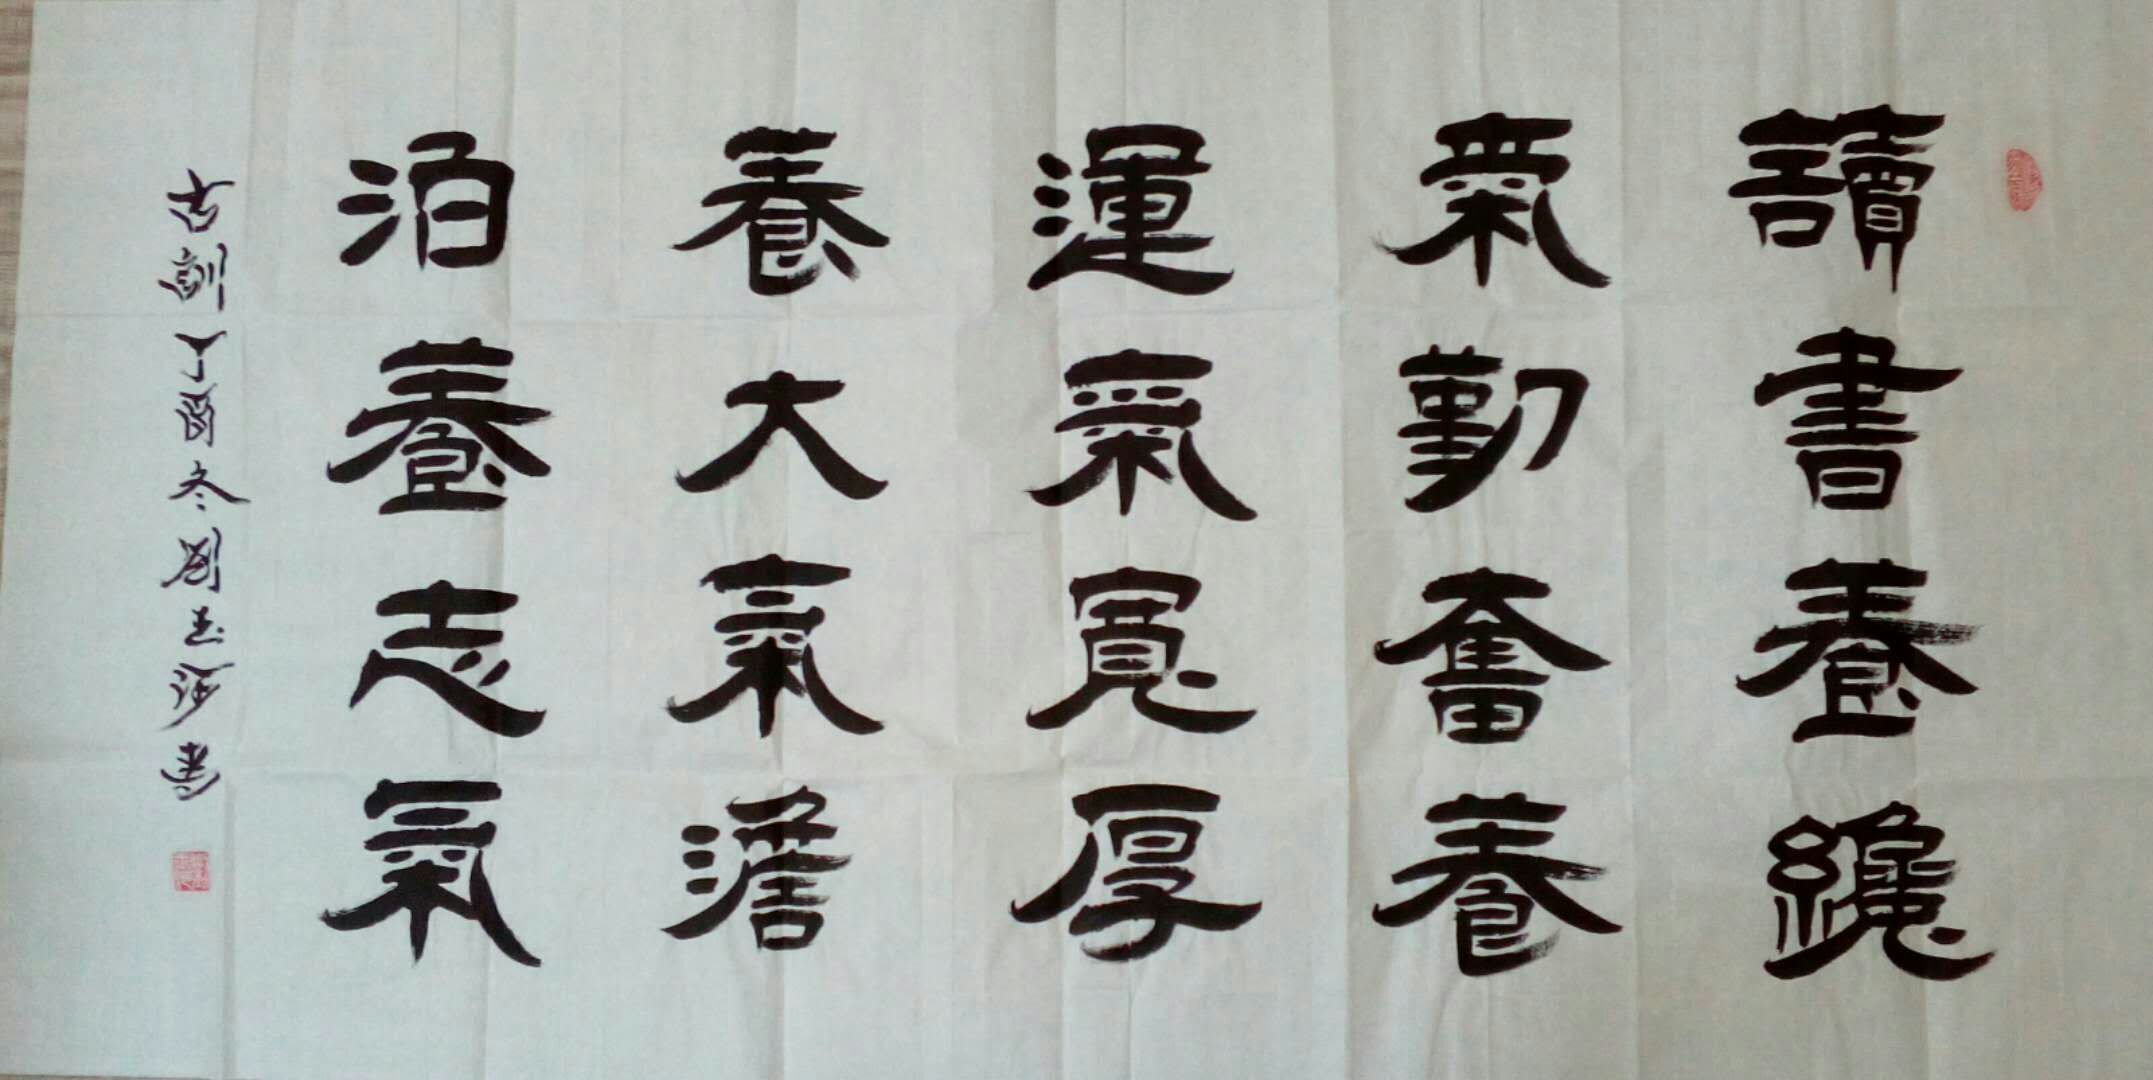 讀書養纔
氣勤奮養
運氣寬厚
養大氣澹
泊養志氣
古訓丁酉冬劉玉河書